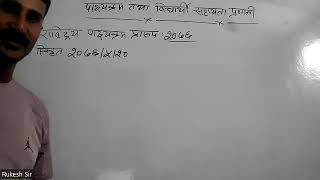 पाठ्यक्रम तथा विद्यार्थी सहायता प्रणाली
राष्ट्रिय पाठ्यक्रम प्रारूप २०७६
स्वीकृत २०७६/८/२०
Rukesh Sir